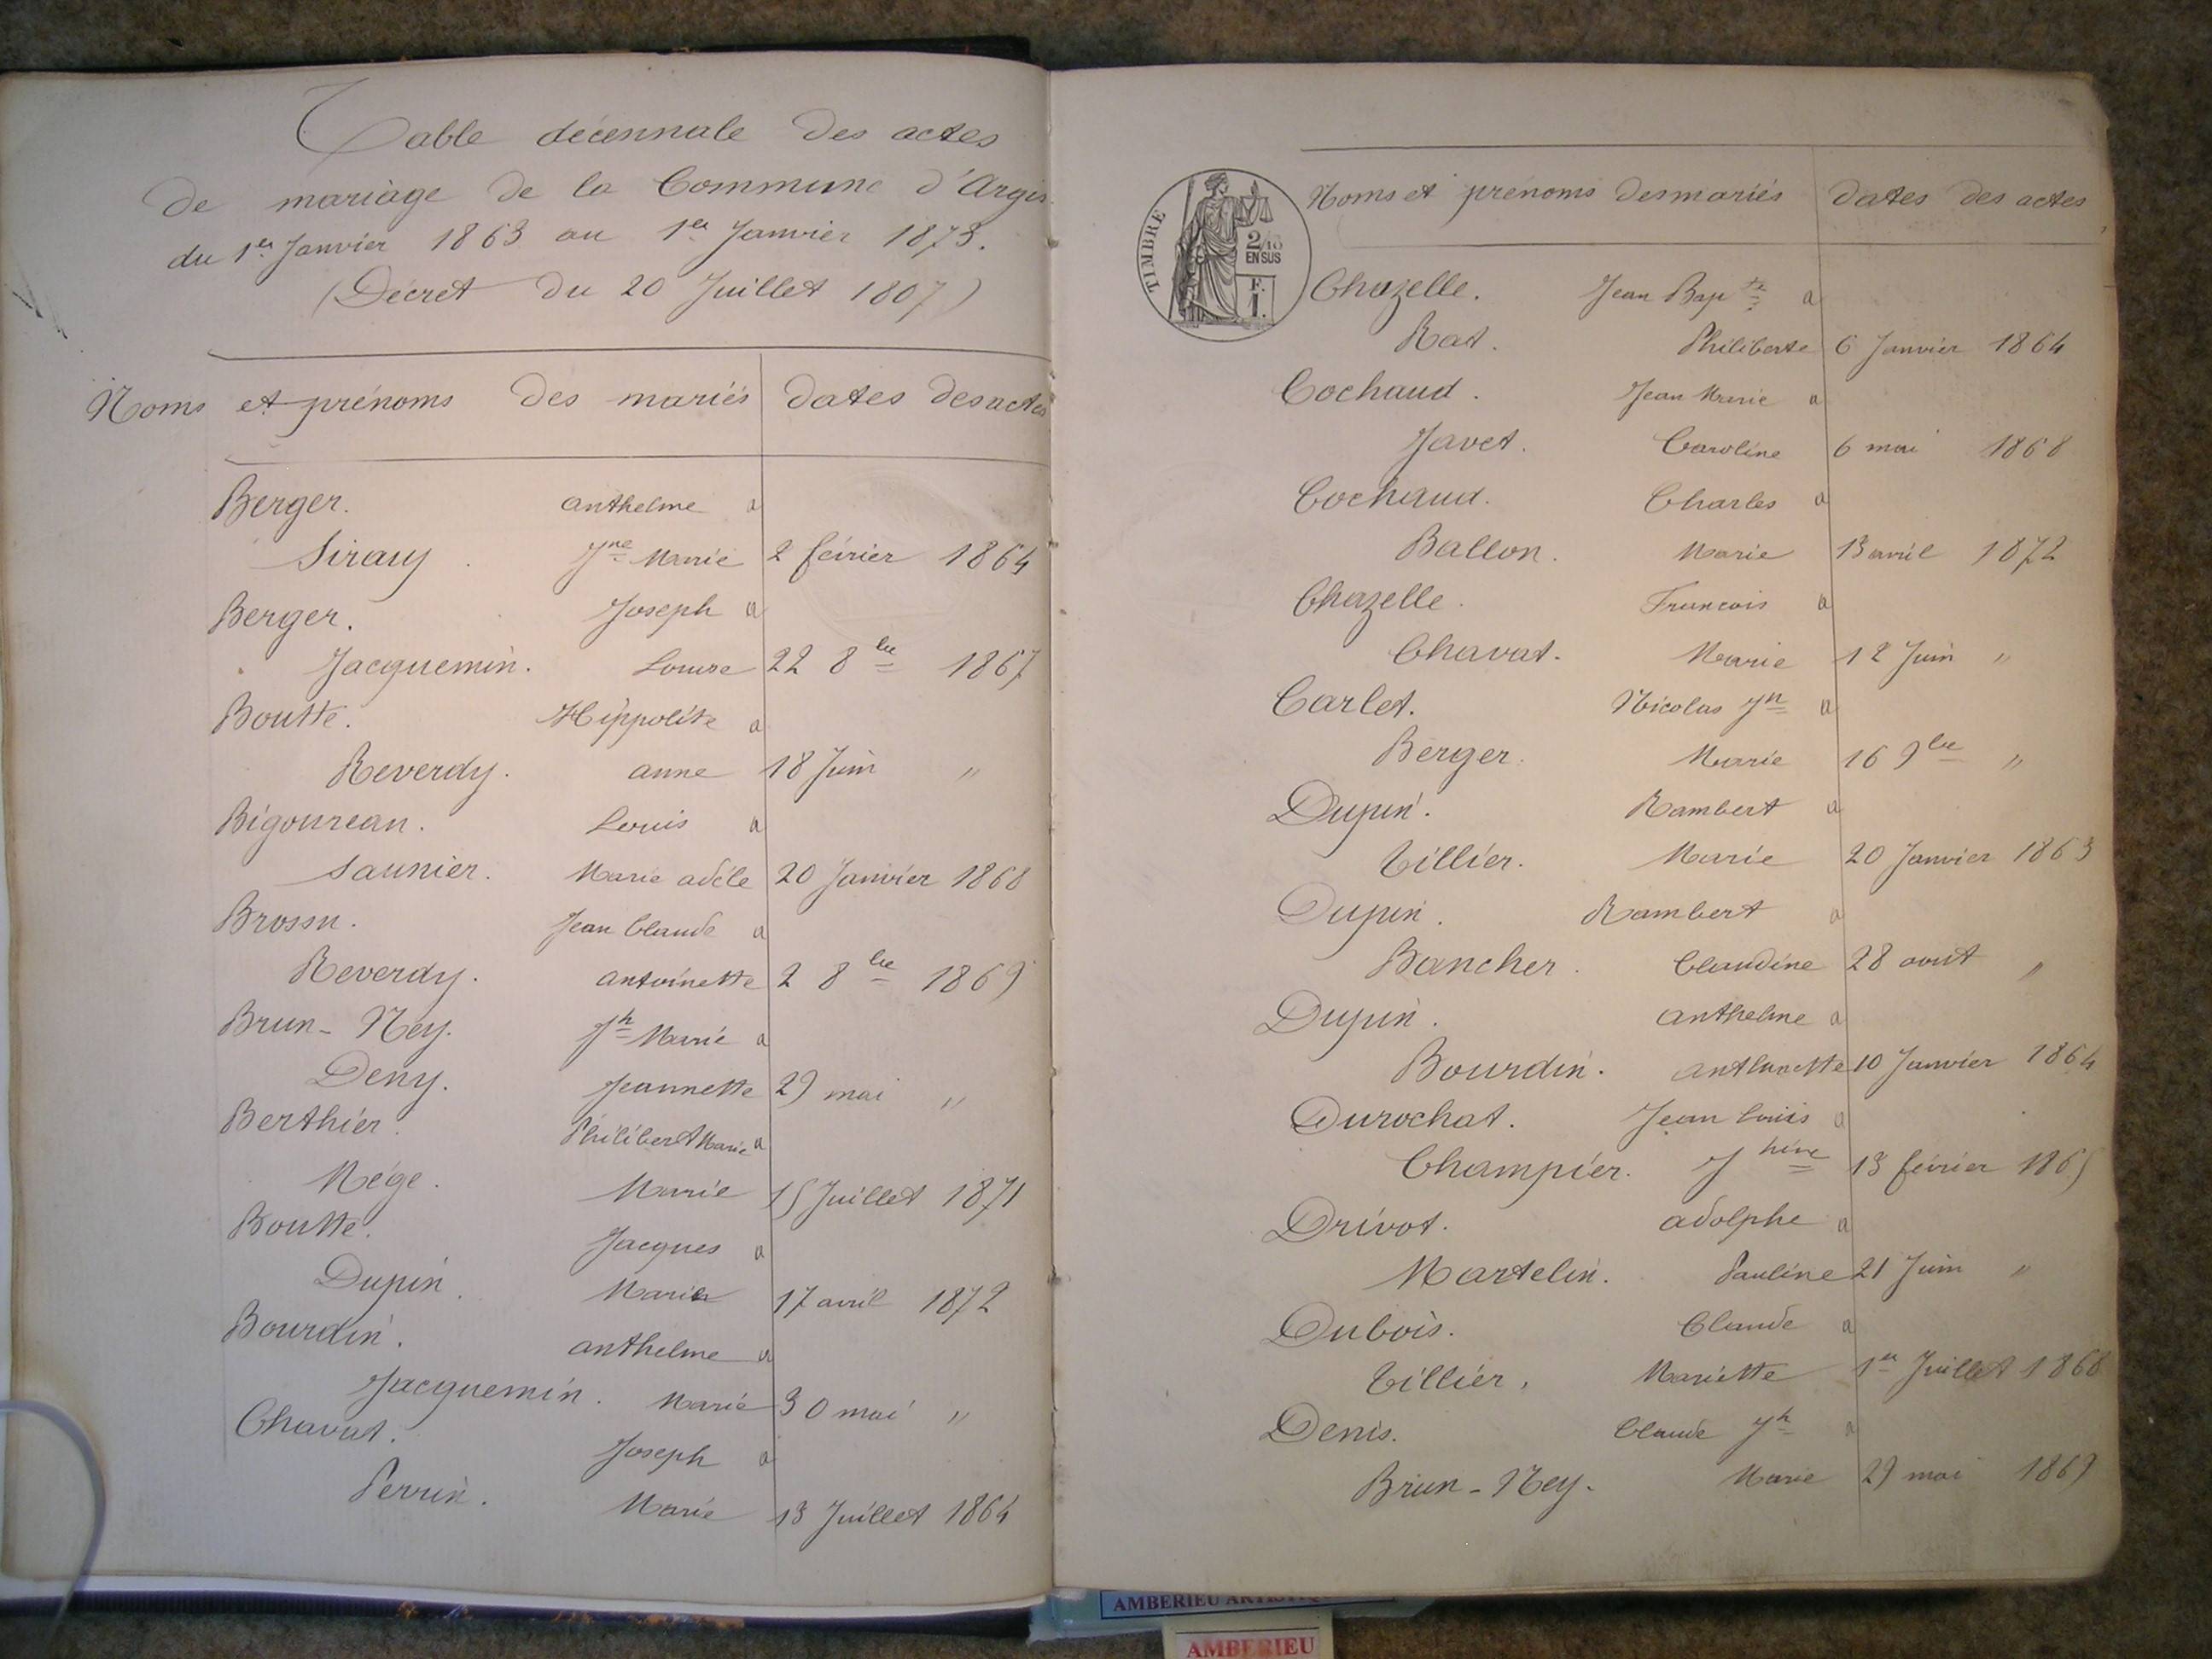 Table décennale des actes
de mariage de la Commune d'Argis
du 1er Janvier 1863 au 1er Janvier 1873.
(Décret du 20 Juillet 1807)
Noms et prénoms des mariés dates des actes
Berger. anthelme a
Siray. Jne Marie 2 février 1864
Berger. Joseph a
Jacquemin. Louise 22 8bre 1867
Boutte. Hippolite a
Reverdy. anne 18 Juin "
Bigourean. Louis a
Saunier. Marie adèle 20 Janvier 1868
Jean Claude a
Reverdy. antoinette 2 8bre 1869
Brun-Ney. Jh Marie a
Deny. Jeannette 29 mai "
Berthier. Philibert Marie a
Mége. Marie 15 Juillet 1871
Boutte. Jacques a
Dupin. Marie 17 avril 1872
Bourdin. anthelme a
Jacquemin. Marie 30 mai "
Chavat. Joseph a
Perrin. Marie 13 Juillet 1864
TIMBRE
2/10
EN SUS
F.
1.
Noms et prénoms des mariés dates des actes
Chazelle. Jean Bapte a
Rat. Philiberte 6 Janvier 1864
Cochaud. Jean Marie a
Javet. Caroline 6 mai 1868
Cochaud. Charles a
Ballon. Marie 13 avril 1872
Chazelle. Francois a
Chavat. Marie 12 Juin "
Carlet. Nicolas Jh a
Berger. Marie 16 9bre "
Dupin. Rambert a
Tillier. Marie 20 Janvier 1863
Dupin. Rambert a
Bancher. Claudine 28 aout "
Dupin. anthelme a
Bourdin. 10 Janvier 1864
Durochat. Jean Louis a
Champier. Jhine 13 février 1865
Drivot. adolphe a
Martelin. Pauline 21 Juin "
Dubois. Claude a
Tillier. Mariette 1er Juillet 1868
Denis. Claude Jh a
Brun-Ney. Marie 29 mai 1869
AMBERIEU
AMBERIEU